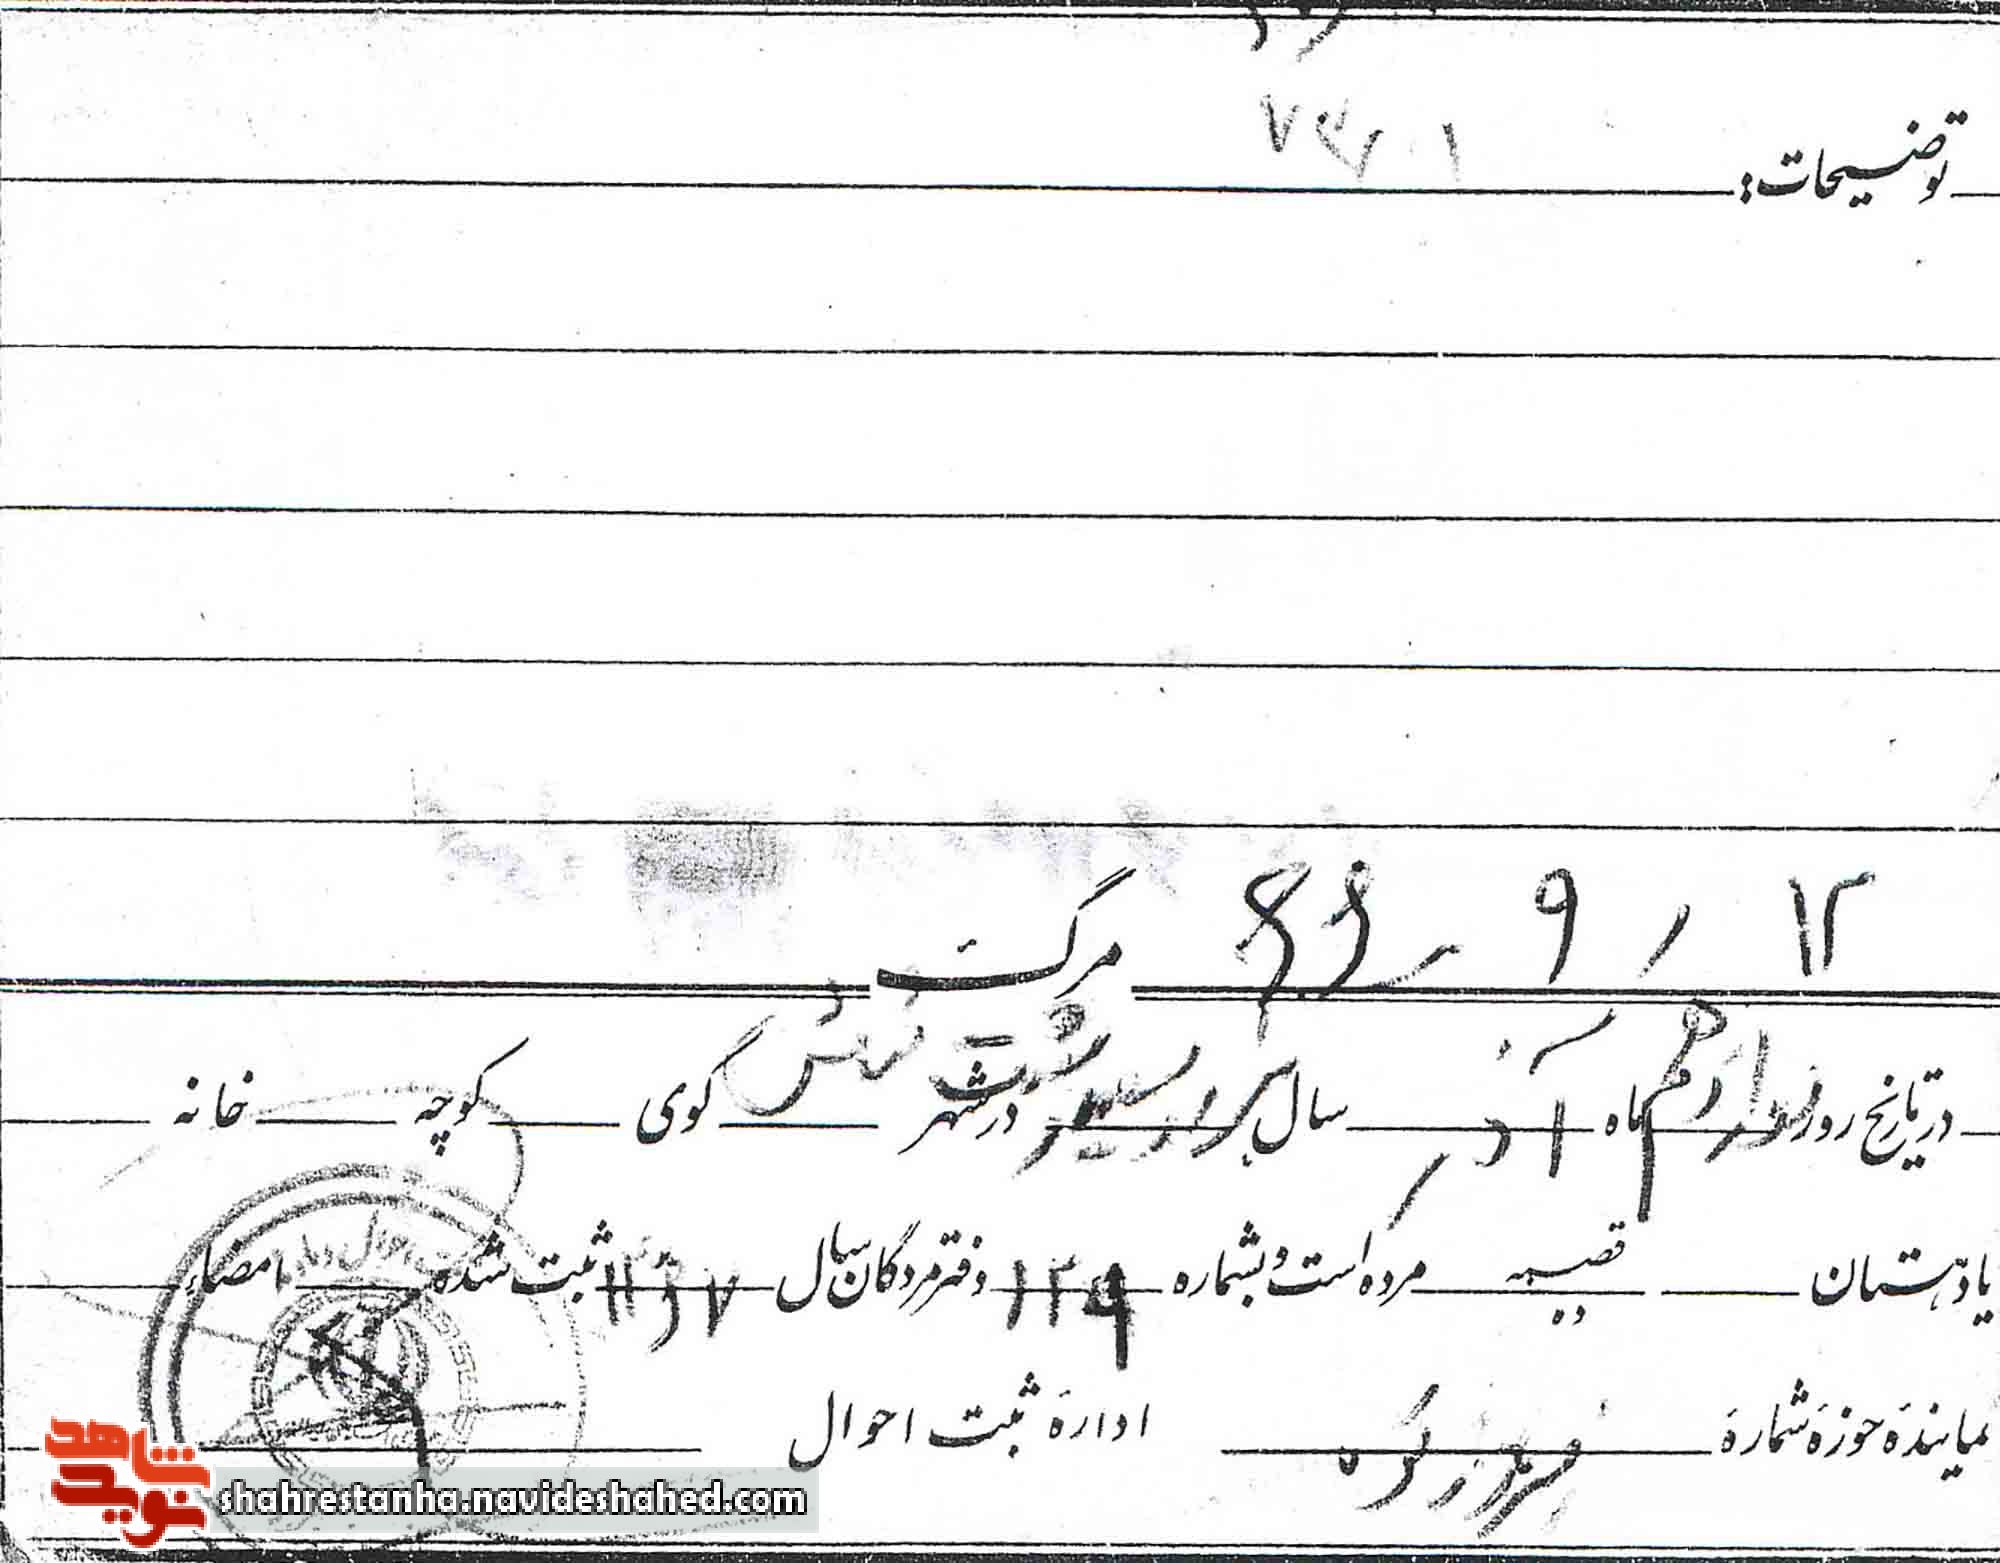 توضیحات:
۱۲ / ۹ - ۶۶
مرگ
در تاریخ روز دوازدهم ماه آذر سال یکهزار و سیصد و شصت و شش در شهر کوی کوچه خانه
یا دهستان قصبه ده مرده است و بشماره ۱۲۹ دفتر مردگان سال ثبت شده امضاء
نماینده حوزه شماره فیروزکوه اداره ثبت احوال
نوید شاهد
shahrestanha.navideshahed.com